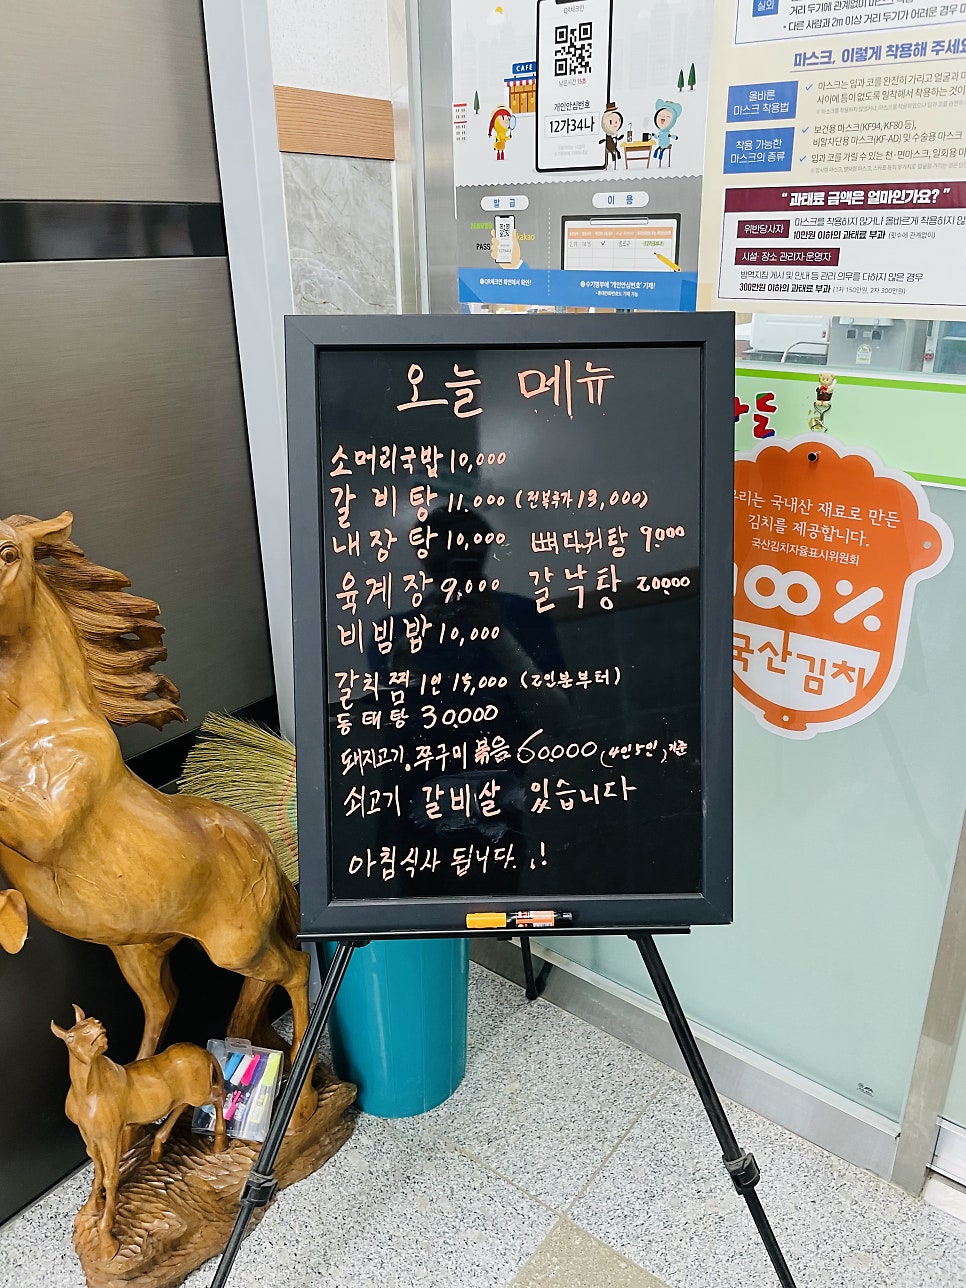 QR체크인
남은시간 15초
개인안심번호
12가34나
CAFE
발급
이용
PASS
kakao
❶QR체크인 화면에서 확인!
❷수기명부에 '개인안심번호' 기재!
실외
• 다른 사람과 2m 이상 거리 두기가 어려운 경우
마스크, 이렇게 착용해 주세요
올바른
마스크 착용법
마스크는 입과 코를 완전히 가리고 얼굴과
사이에 틈이 없도록 밀착해서 착용하는 것이
착용 가능한
마스크의 종류
보건용 마스크(KF94, KF80 등),
비말차단용 마스크(KF-AD) 및 수술용 마스크
입과 코를 가릴 수 있는 천·면마스크, 일회용
“ 과태료 금액은 얼마인가요? ”
위반당사자
마스크를 착용하지 않거나 올바르게 착용하지
10만원 이하의 과태료 부과 (횟수에 관계없이)
시설·장소 관리자·운영자
방역지침 게시 및 안내 등 관리 의무를 다하지 않은 경우
300만원 이하의 과태료 부과 (1차 150만원, 2차 300만원)
오늘 메뉴
소머리국밥 10,000
갈비탕 11.000 (전복추가 13,000)
내장탕 10,000 뼈다귀탕 9,000
육계장 9,000 갈낙탕 20,000
비빔밥 10,000
갈치찜 1인 15,000 (2인분부터)
동태탕 30,000
돼지고기,쭈구미 볶음 60,000 (4인5인)기준
쇠고기 갈비살 있습니다
아침식사 됩니다..!
들
우리는 국내산 재료로 만든
김치를 제공합니다.
국산김치자율표시위원회
100%
국산김치